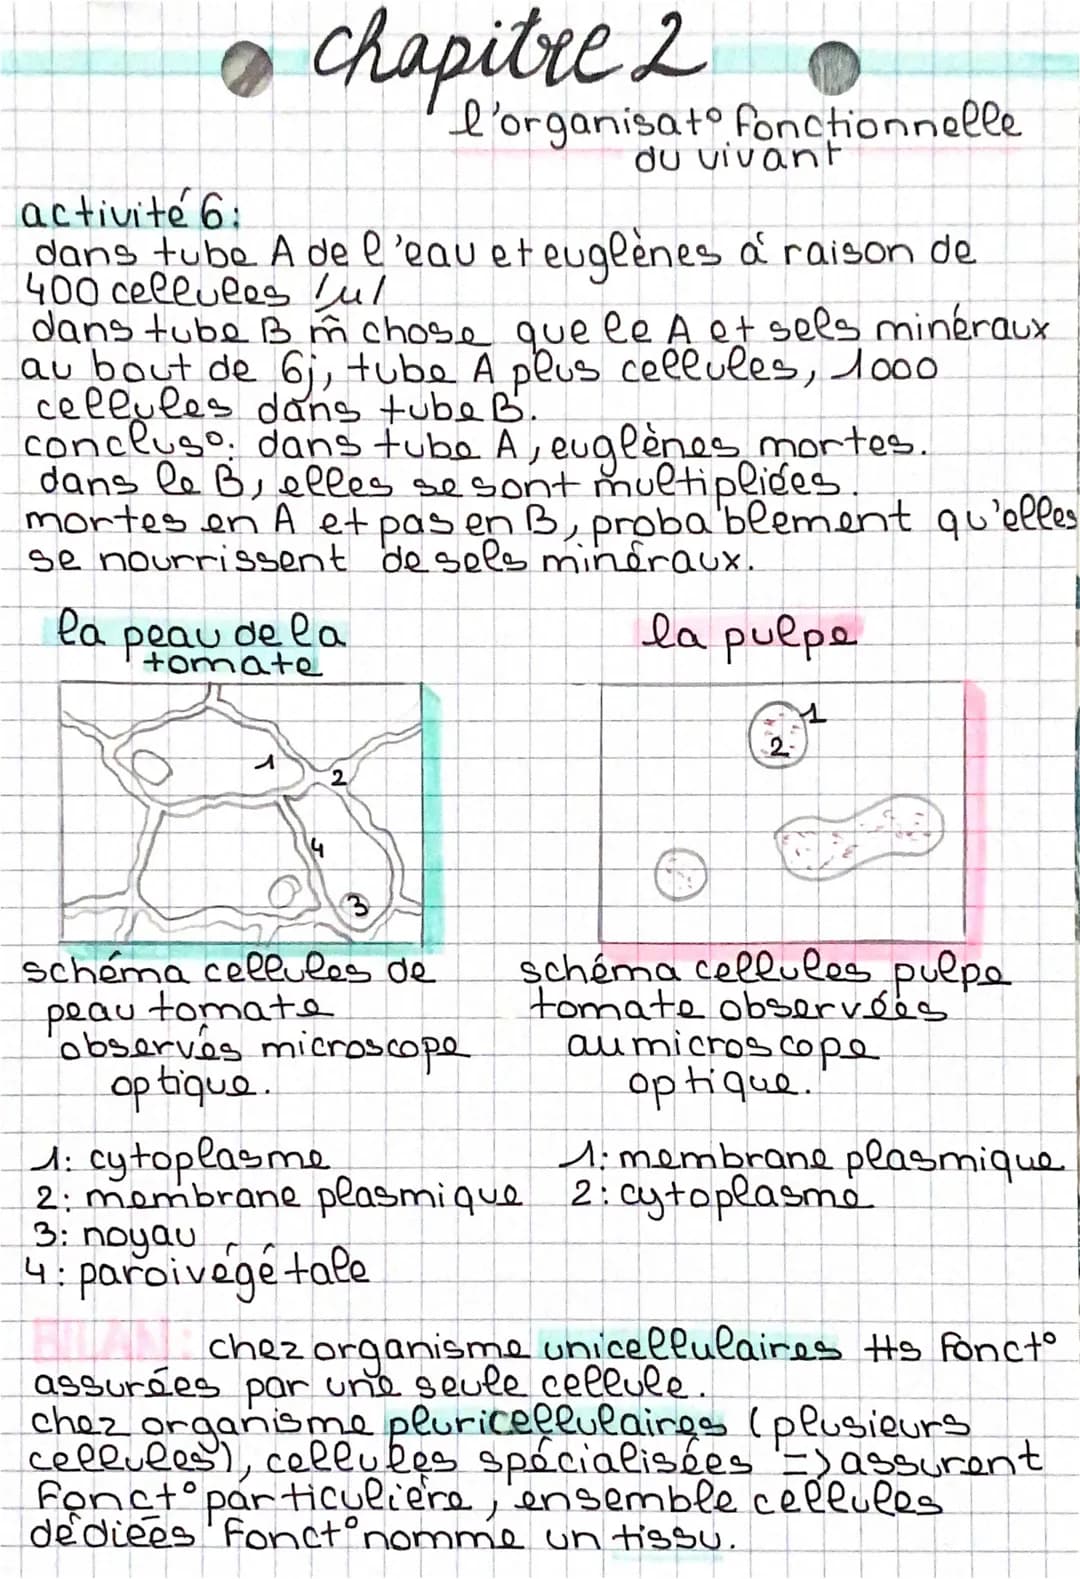 chapitre 2
l'organisat° fonctionnelle
du vivant
activité 6:
dans tube A de l'eau et euglènes à raison de
400 cellules /µl
dans tube B m̂ chose que le A et sels minéraux
au bout de 6j, tube A plus cellules, 1000
cellules dans tube B.
concluso: dans tube A, euglènes mortes.
dans le B, elles se sont multipliées.
mortes en A et pas en B, probablement qu'elles
se nourrissent de sels minéraux.
la peau de la
tomate
1
2
4
3
schéma cellules de
peau tomate
observés microscope
optique.
1: cytoplasme
2: membrane plasmique
3: noyau
4: paroi végétale
la pulpe
1
2
schéma cellules pulpe
tomate observées
au microscope
optique.
1: membrane plasmique
2: cytoplasme
BILAN: chez organisme unicellulaires tts fonct°
assurées par une seule cellule.
chez organisme pluricellulaires (plusieurs
cellules), cellules spécialisées => assurent
fonct° particulière, ensemble cellules
dédiées fonct° nomme un tissu.